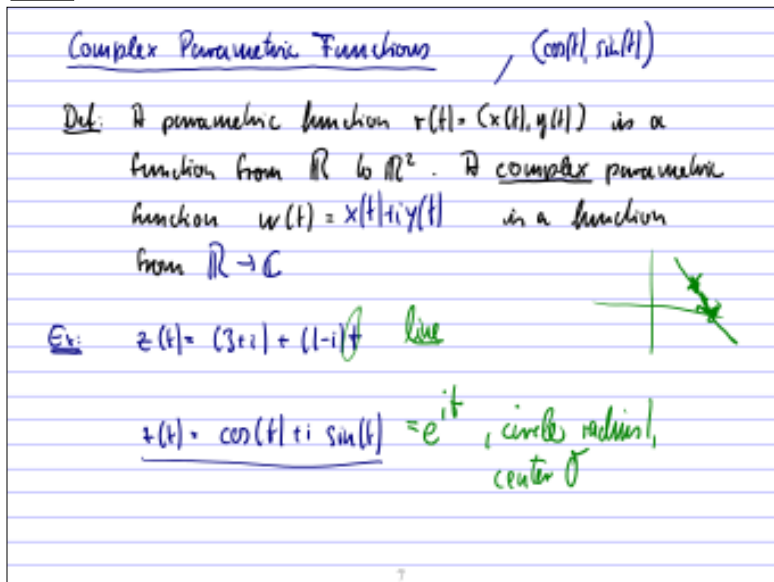 Complex Parametric Functions , (cos(t), sin(t))
Def: A parametric function r(t) = (x(t), y(t)) is a
function from ℝ to ℝ². A complex parametric
function w(t) = x(t)+iy(t) is a function
from ℝ → ℂ
Ex: z(t) = (3+i) + (1-i)t line
z(t) = cos(t)+i sin(t) = e^{it} , circle radius 1,
center 0
7